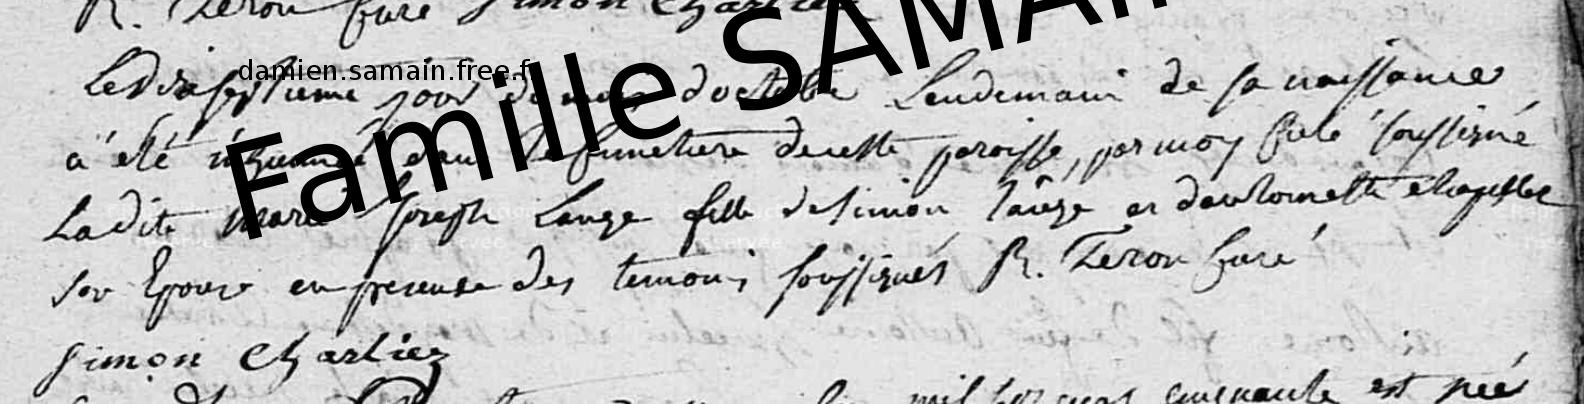 R. Teron Curé Simon Charliez
Le dix septieme jour du mois d'octobre Lendemain de sa naissance
a été inhumé dans le cimetiere de cette paroisse, par moy Curé soussigné
La dite marie joseph Lange fille de simon Lange et d'antoinette chapelle
son Epouse en presence des temoins soussignés R. Teron Curé
Simon Charliez
mil sept cens cinquante est née
damien.samain.free.fr
Famille SAMAIN